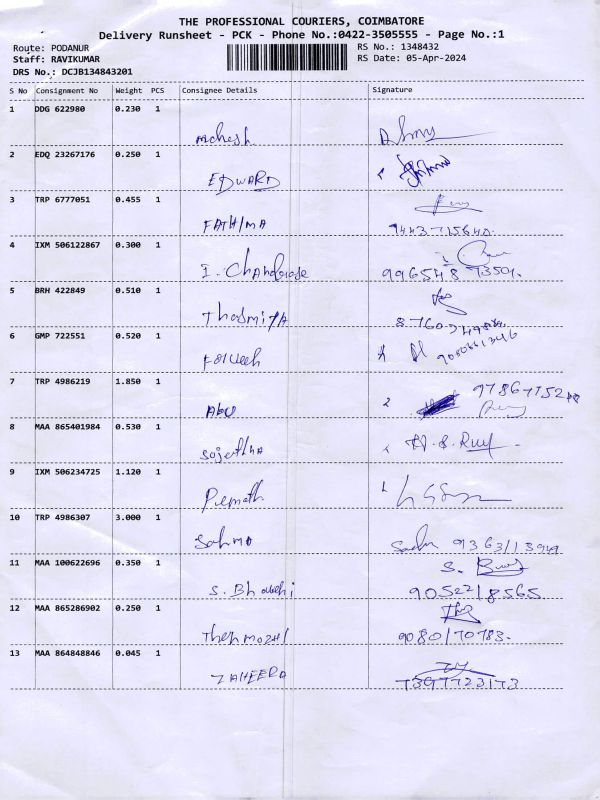 THE PROFESSIONAL COURIERS, COIMBATORE
Delivery Runsheet - PCK - Phone No.:0422-3505555 - Page No.:1
Route: PODANUR
RS No.: 1348432
Staff: RAVIKUMAR
RS Date: 05-Apr-2024
DRS No.: DCJB134843201
S No Consignment No Weight PCS Consignee Details Signature
1 DDG 622980 0.230 1
Mahesh
2 EDQ 23267176 0.250 1
EDWARD
3 TRP 6777051 0.455 1
FATHIMA
4 IXM 506122867 0.300 1
I.
5 BRH 422849 0.510 1
6 GMP 722551 0.520 1
7 TRP 4986219 1.850 1
ABU
8 MAA 865401984 0.530 1
9 IXM 506234725 1.120 1
10 TRP 4986307 3.000 1
11 MAA 100622696 0.350 1
S.
9052218565
12 MAA 865286902 0.250 1
Thenmozhi
9080170783.
13 MAA 864848846 0.045 1
ZAHEERA
7397723173